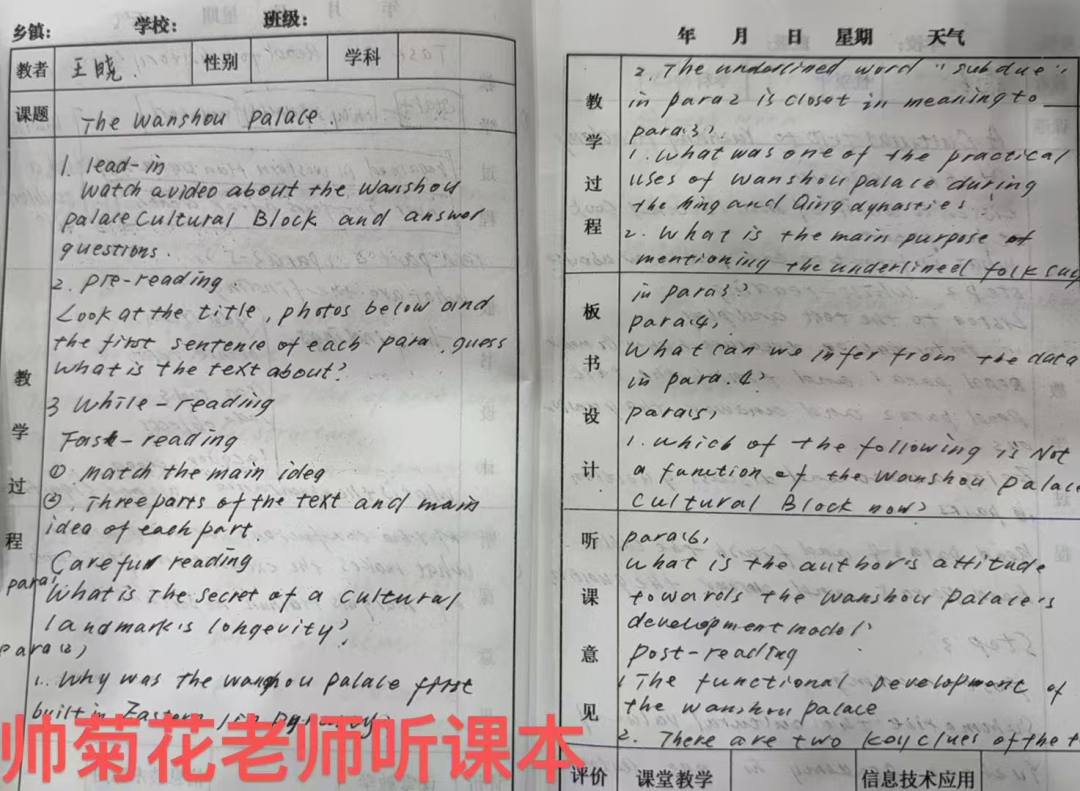 乡镇: 学校: 班级:
教者 王晓. 性别 学科
课题 The Wanshou Palace.
教学过程
1. lead-in
Watch a video about the Wanshou
Palace Cultural Block and answer
questions.
2. Pre-reading
Look at the title, photos below and
the first sentence of each para, guess
what is the text about?
3 While-reading
Fast-reading
① Match the main idea
②. Three parts of the text and main
idea of each part
Careful reading
para1
What is the secret of a cultural
landmark's longevity?
para(2)
1. Why was the Wanshou Palace first
built in Eastern Jin
帅菊花老师听课本
年 月 日 星期 天气
教学过程
2. The underlined word "subdue"
in para2 is closet in meaning to
para3,
1. What was one of the practical
uses of Wanshou Palace during
the Ming and Qing dynasties.
2. What is the main purpose of
mentioning the underlined folk say
板书设计
in para3?
para4,
What can we infer from the data
in para.4?
para5,
1. Which of the following is Not
a function of the Wanshou Palace
Cultural Block now?
听课意见
para6,
What is the author's attitude
towards the Wanshou Palace's
development model?
Post-reading
1 The functional development of
the Wanshou Palace
2. There are two key clues of the t
评价 课堂教学 信息技术应用